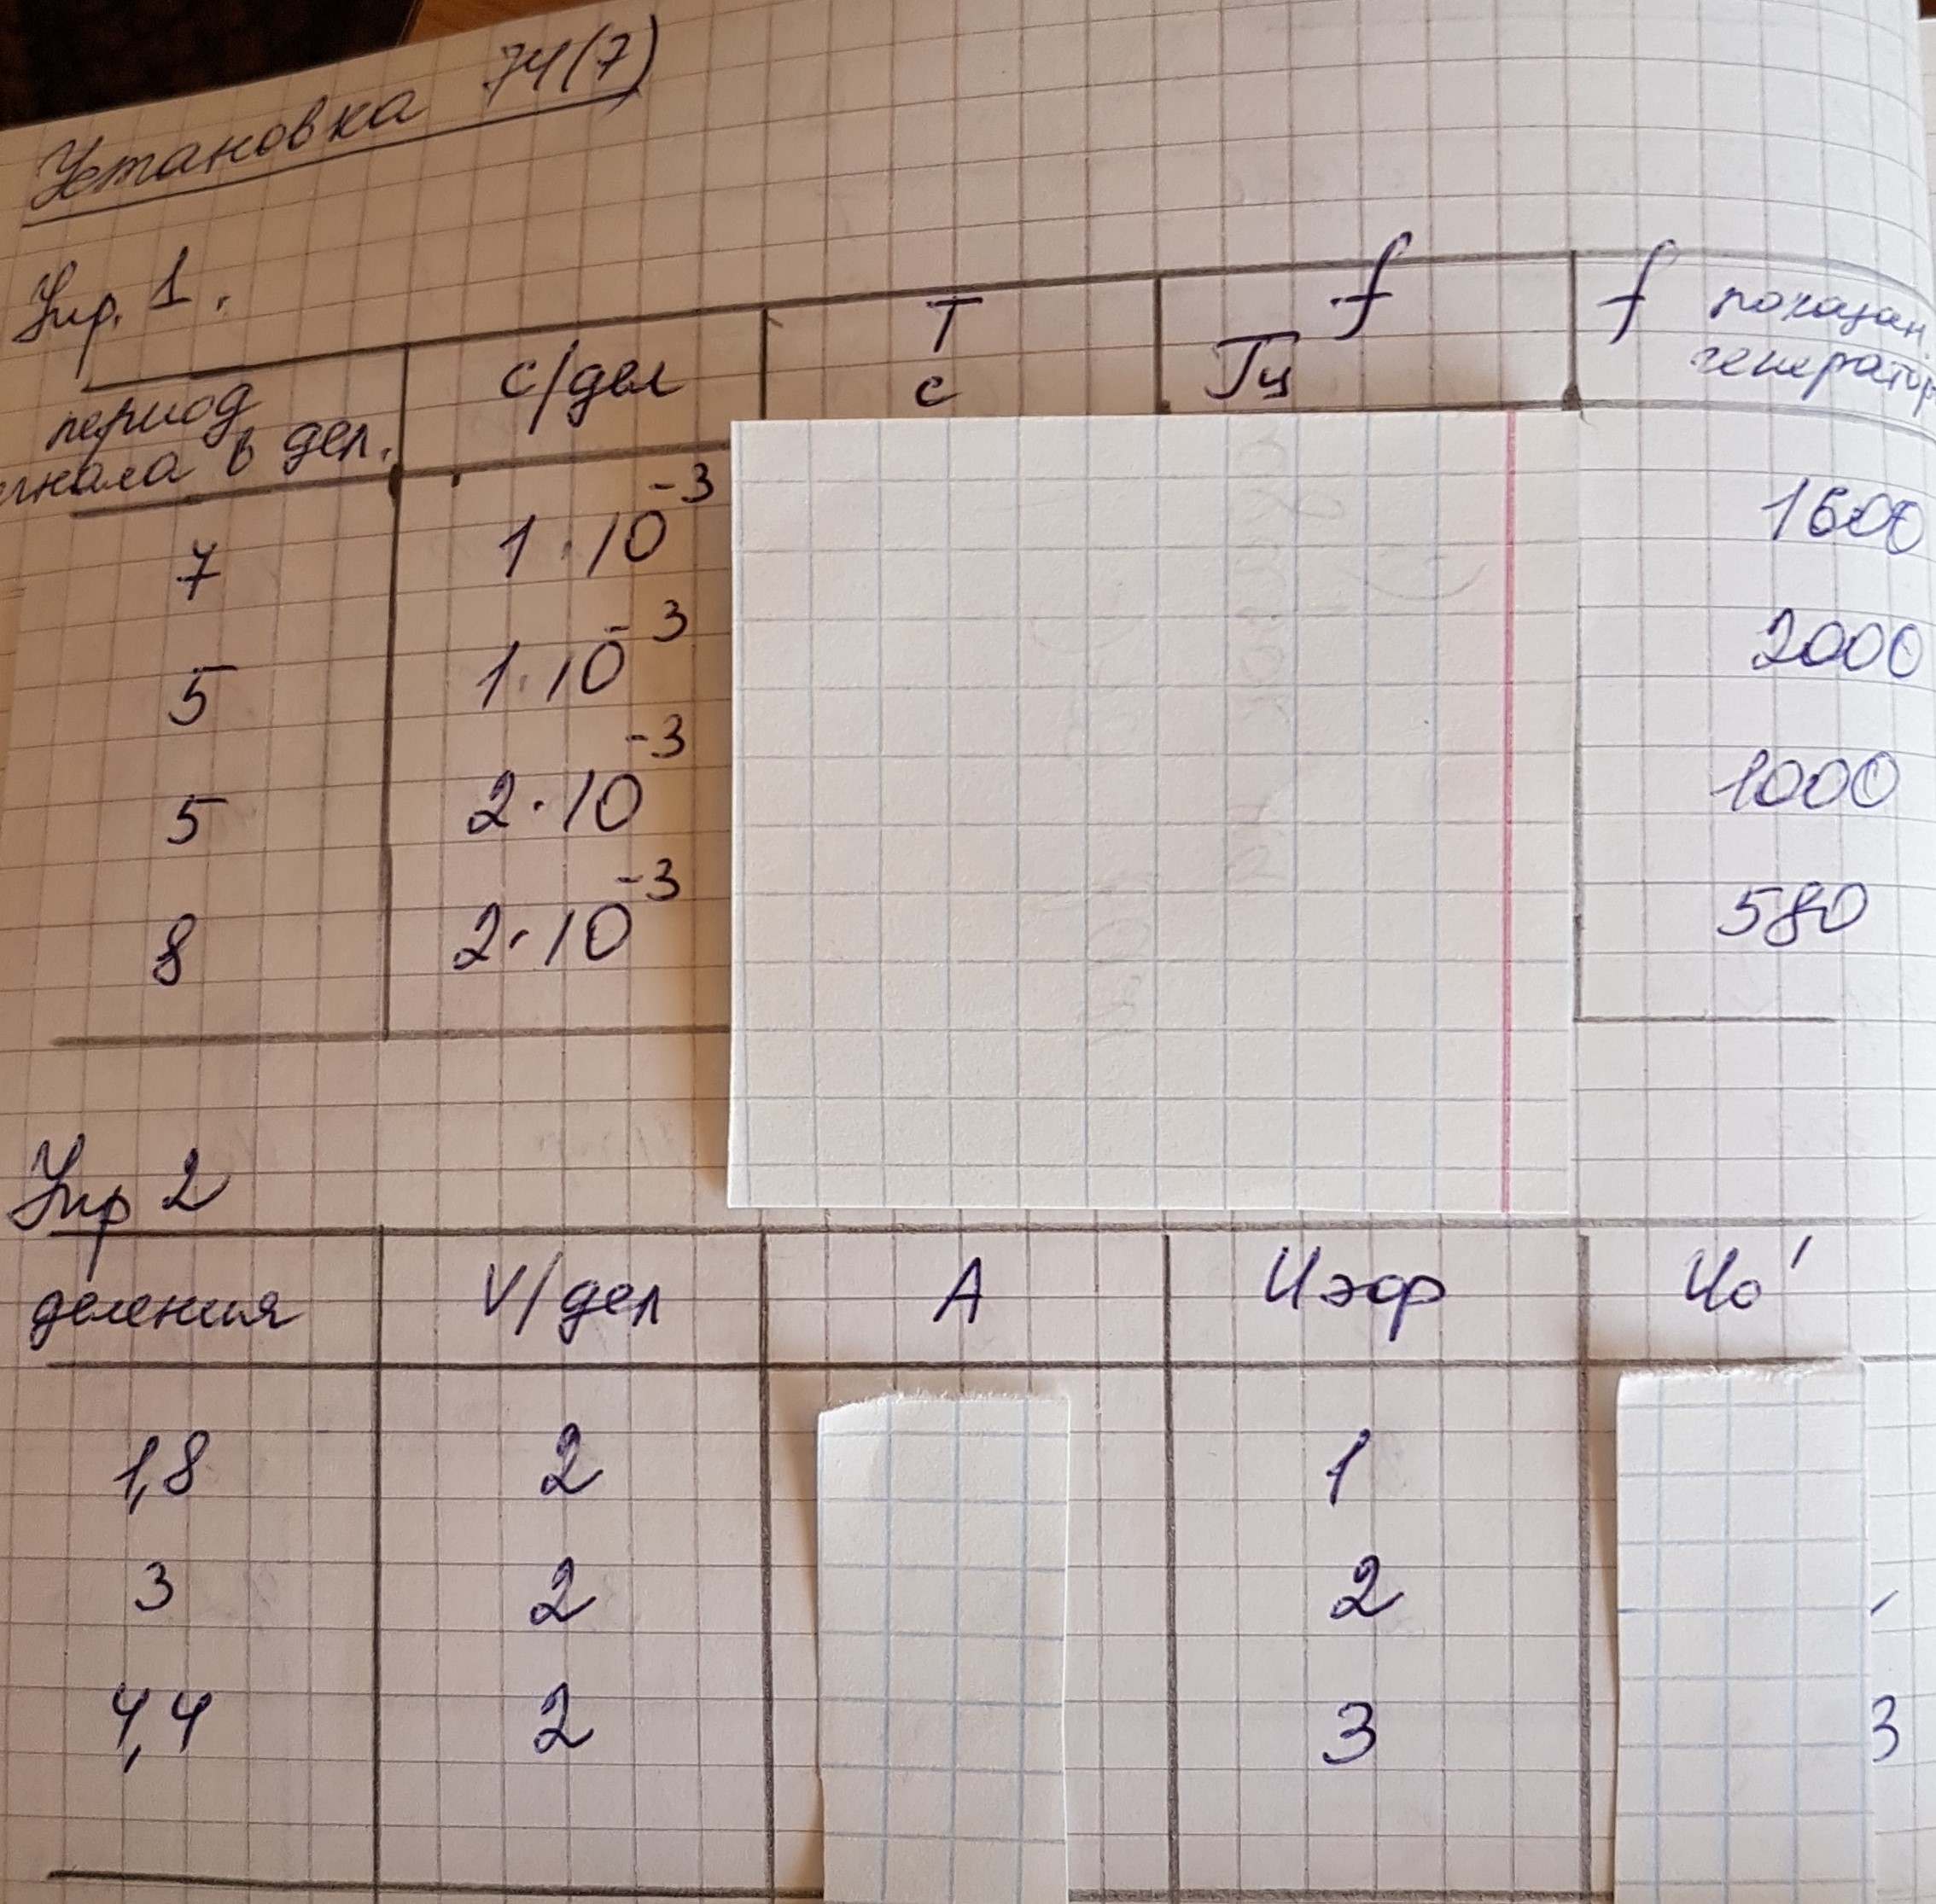 Установка 74(7)
Упр. 1.
период
сигнала в дел.
с/дел
T
с
f
Гц
f показан.
генератор
7 1·10⁻³ 1600
5 1·10⁻³ 2000
5 2·10⁻³ 1000
8 2·10⁻³ 580
Упр 2
деления V/дел A Uэф U₀'
1,8 2 1
3 2 2
4,4 2 3 3